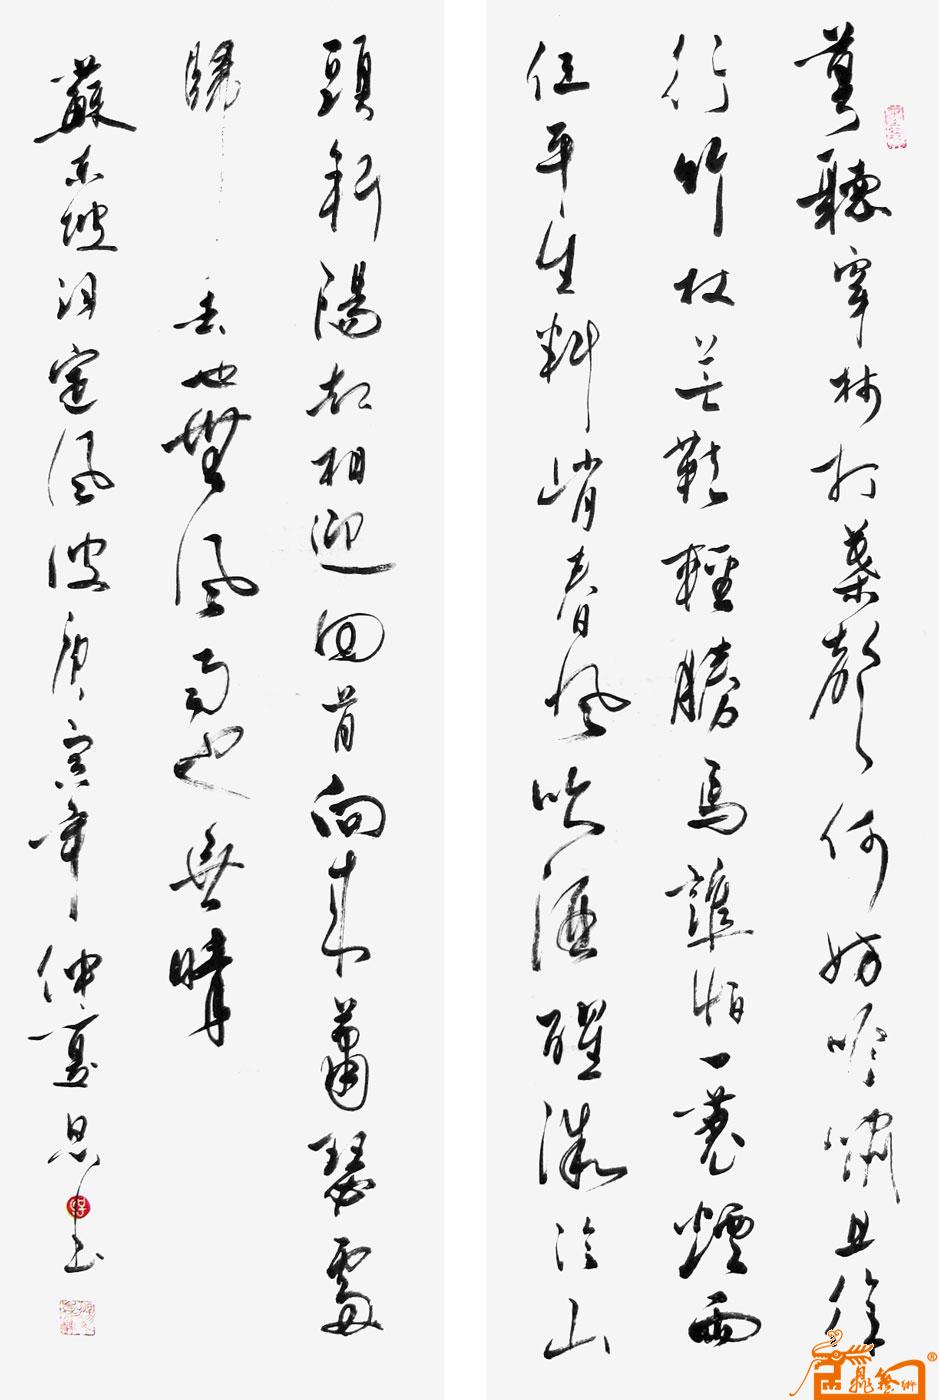 莫聽穿林打葉聲何妨吟嘯且徐
行竹杖芒鞋輕勝馬誰怕一蓑煙雨
任平生料峭春風吹酒醒微冷山
頭斜陽却相迎回首向來蕭瑟處
歸去也無風雨也無晴
蘇東坡詞定風波庚寅年仲夏